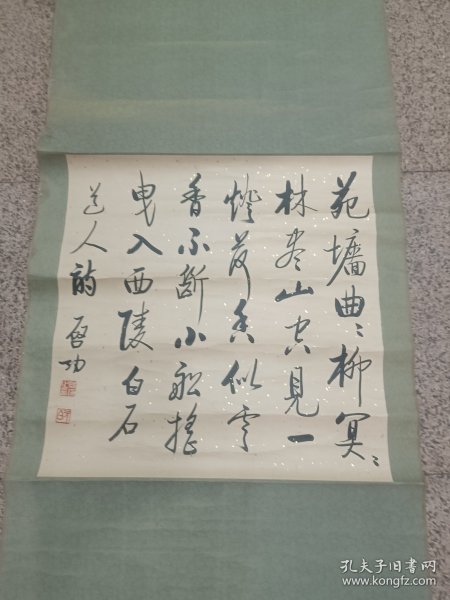 苑墻曲〻柳冥〻
林山空見一
燈似雲
香不斷小船搖
曳入西陵白石
道人啓功
孔夫子旧书网
www.kongfz.com